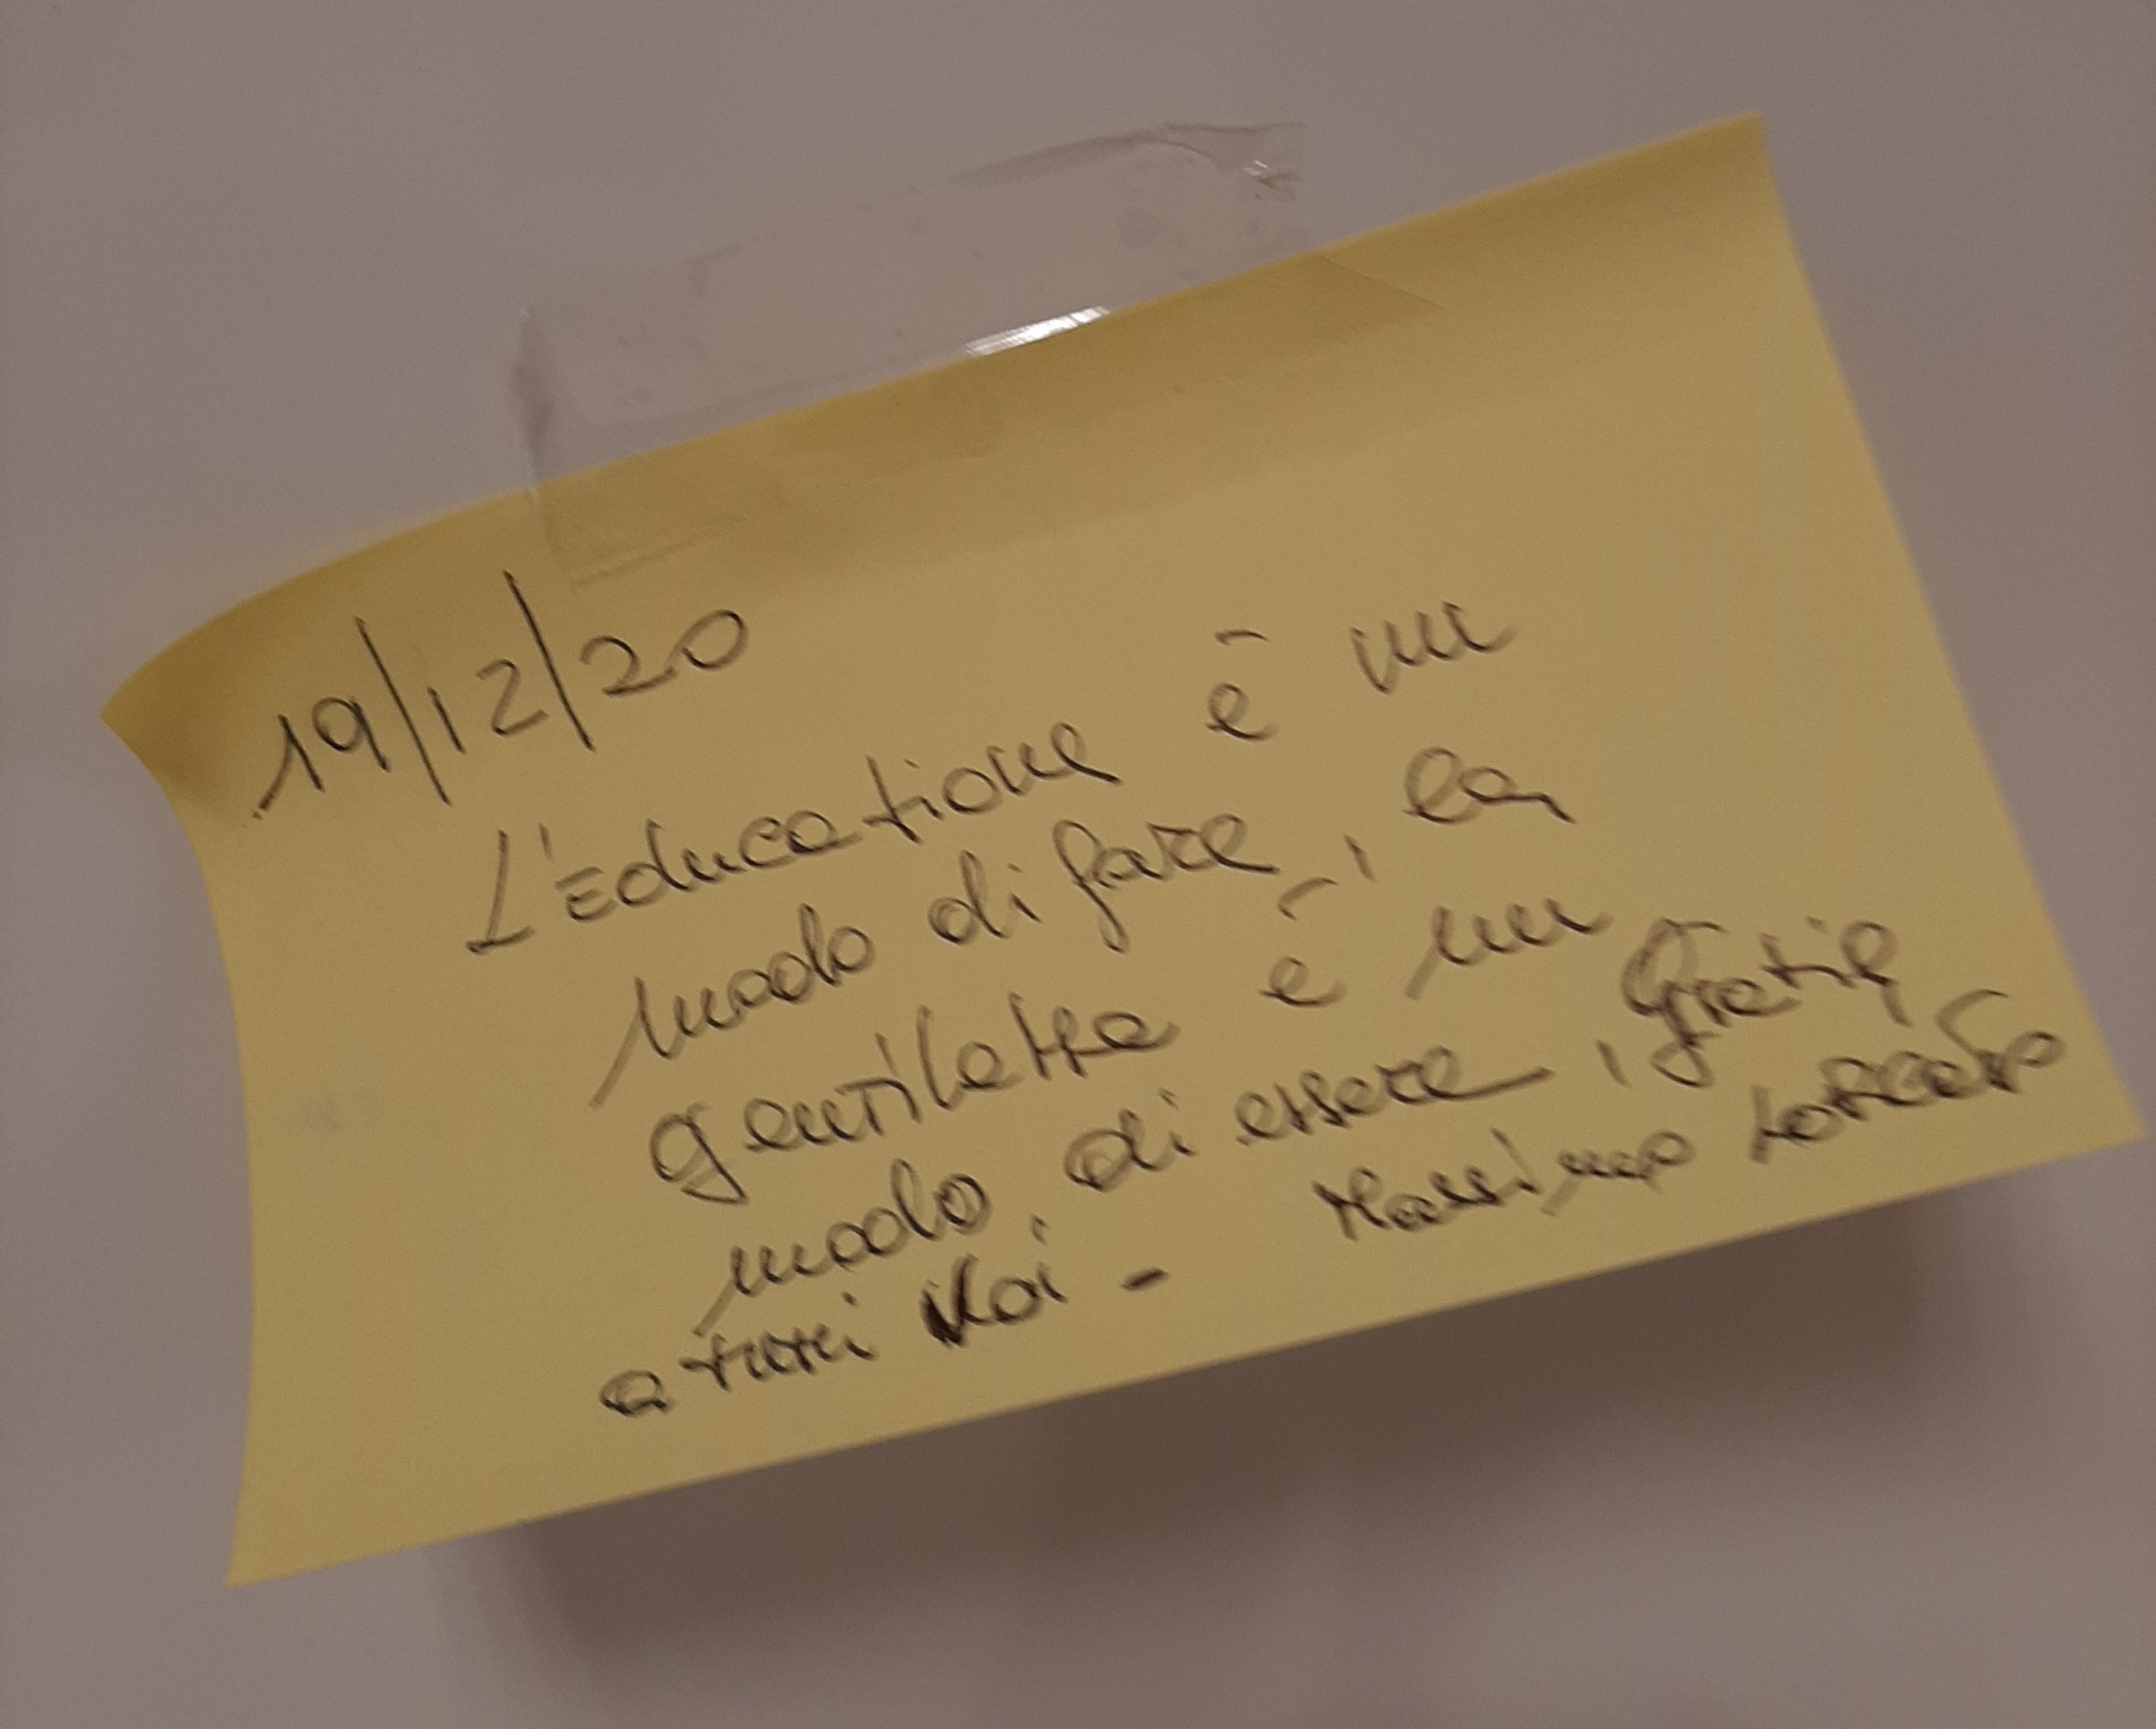 19/12/20
L'Educazione è un
modo di fare, la
gentilezza è un
modo di essere, Grazie
a tutti Noi - Massimo